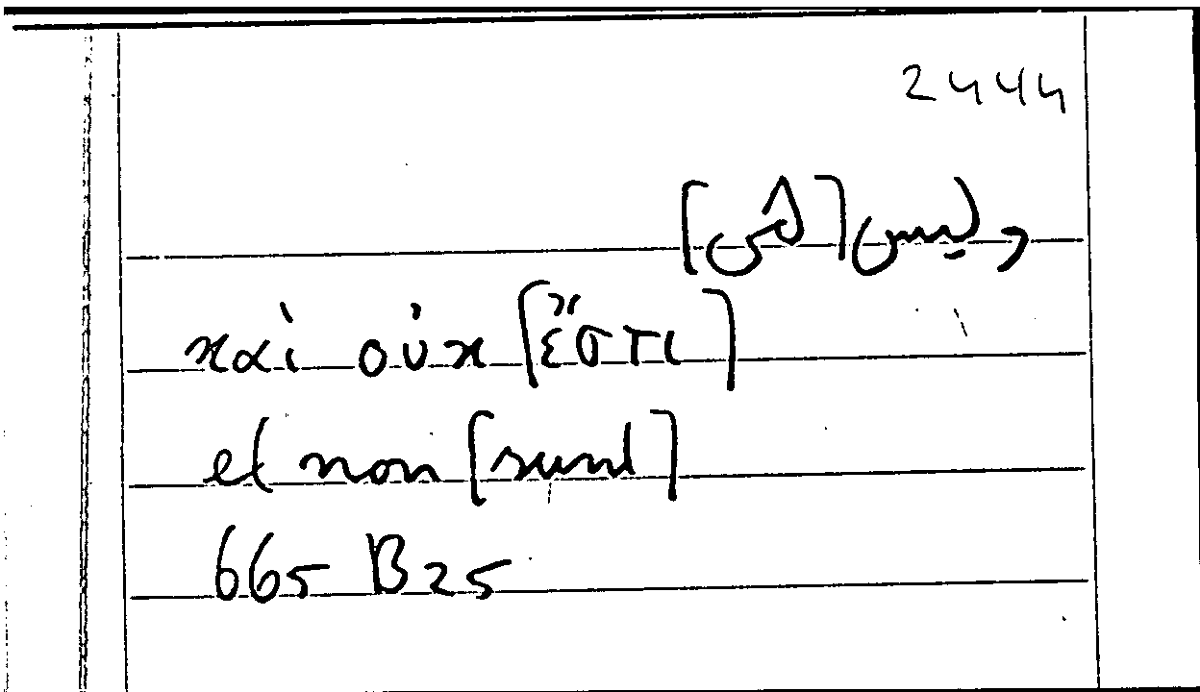 2444
وليس [هى]
καὶ οὐκ [ἔστι]
et non [sunt]
665 B25